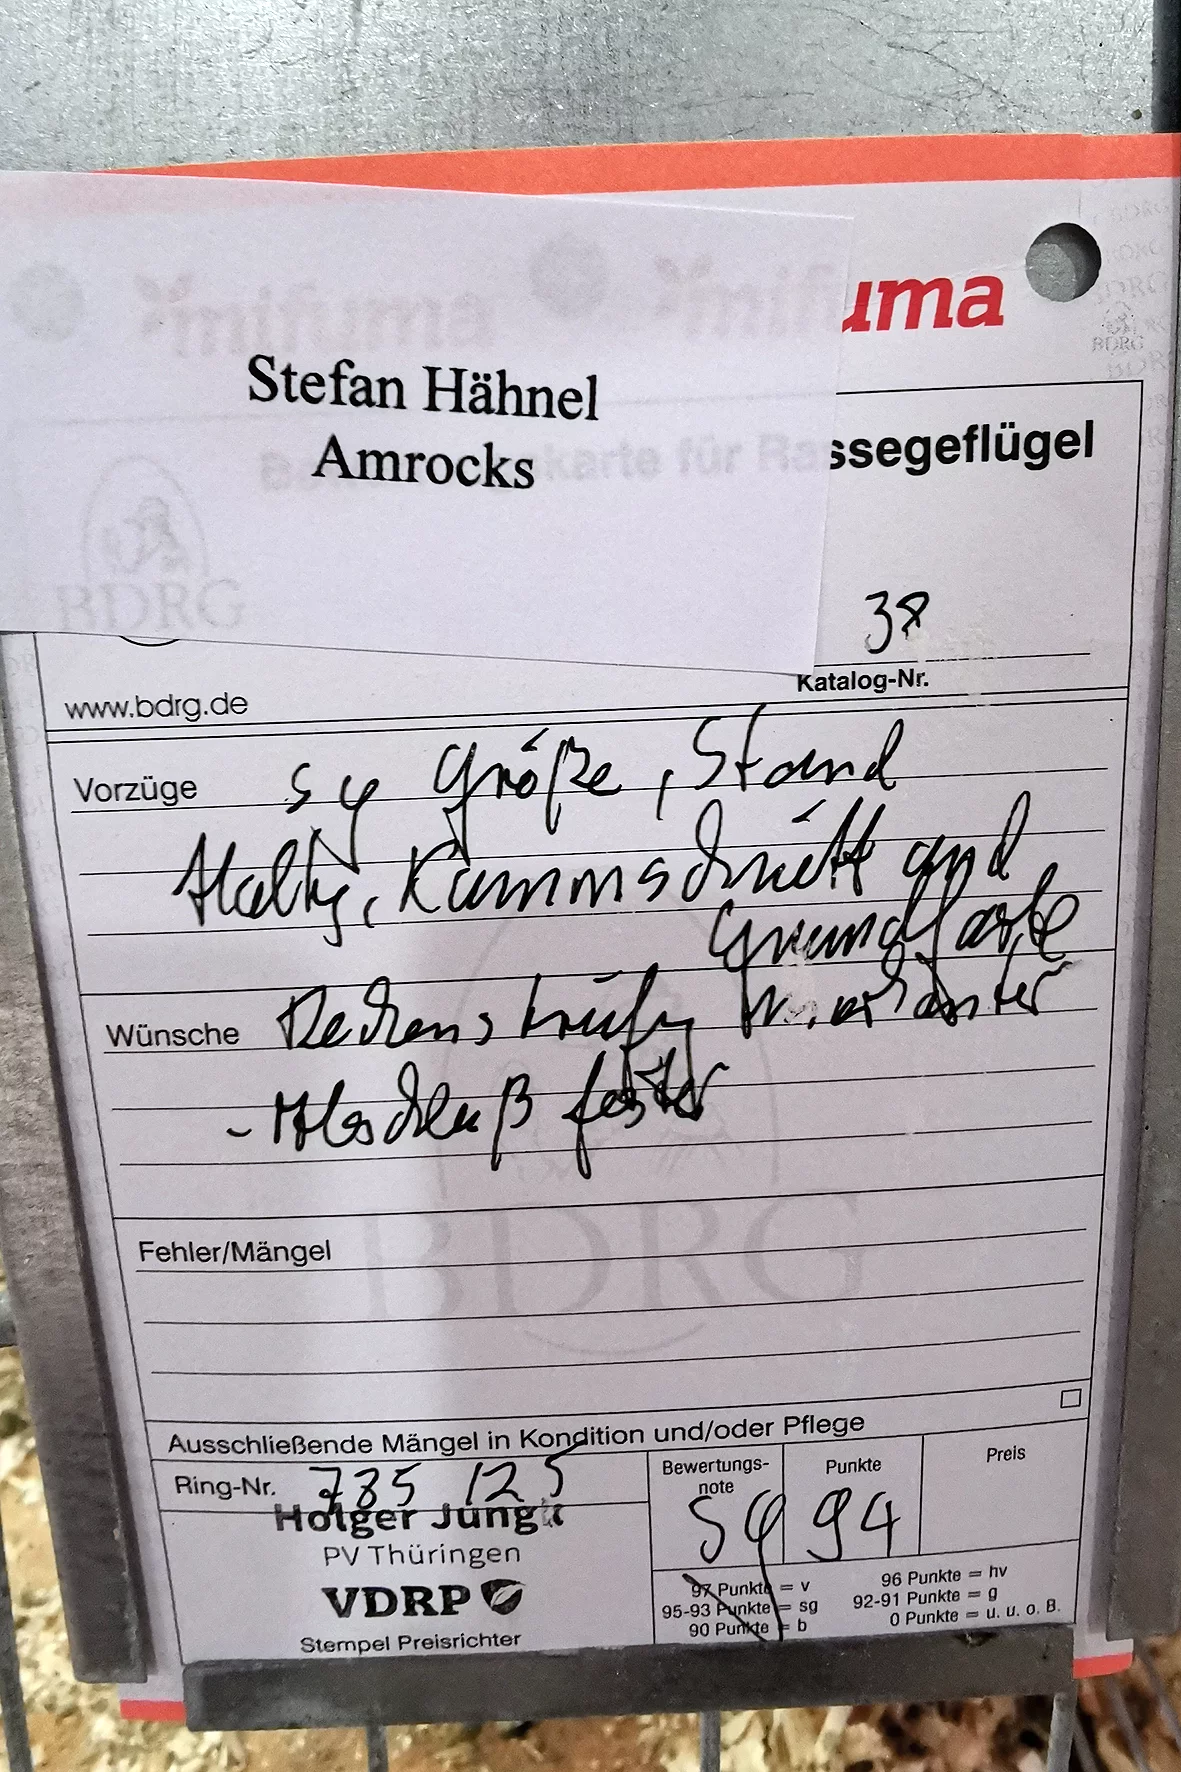 uma
Stefan Hähnel
Amrocks
ssegeflügel
38
Katalog-Nr.
www.bdrg.de
Vorzüge sg Größe, Stand
Haltg, Kammschnitt und
Grundfarbe
Wünsche
- Abschluß fester
BDRG
Fehler/Mängel
Ausschließende Mängel in Kondition und/oder Pflege
Ring-Nr. 785 125
Holger Jung
PV Thüringen
VDRP
Stempel Preisrichter
Bewertungs-
note
sg
Punkte
94
Preis
97 Punkte = v
95-93 Punkte = sg
90 Punkte = b
96 Punkte = hv
92-91 Punkte = g
0 Punkte = u. u. o. B.